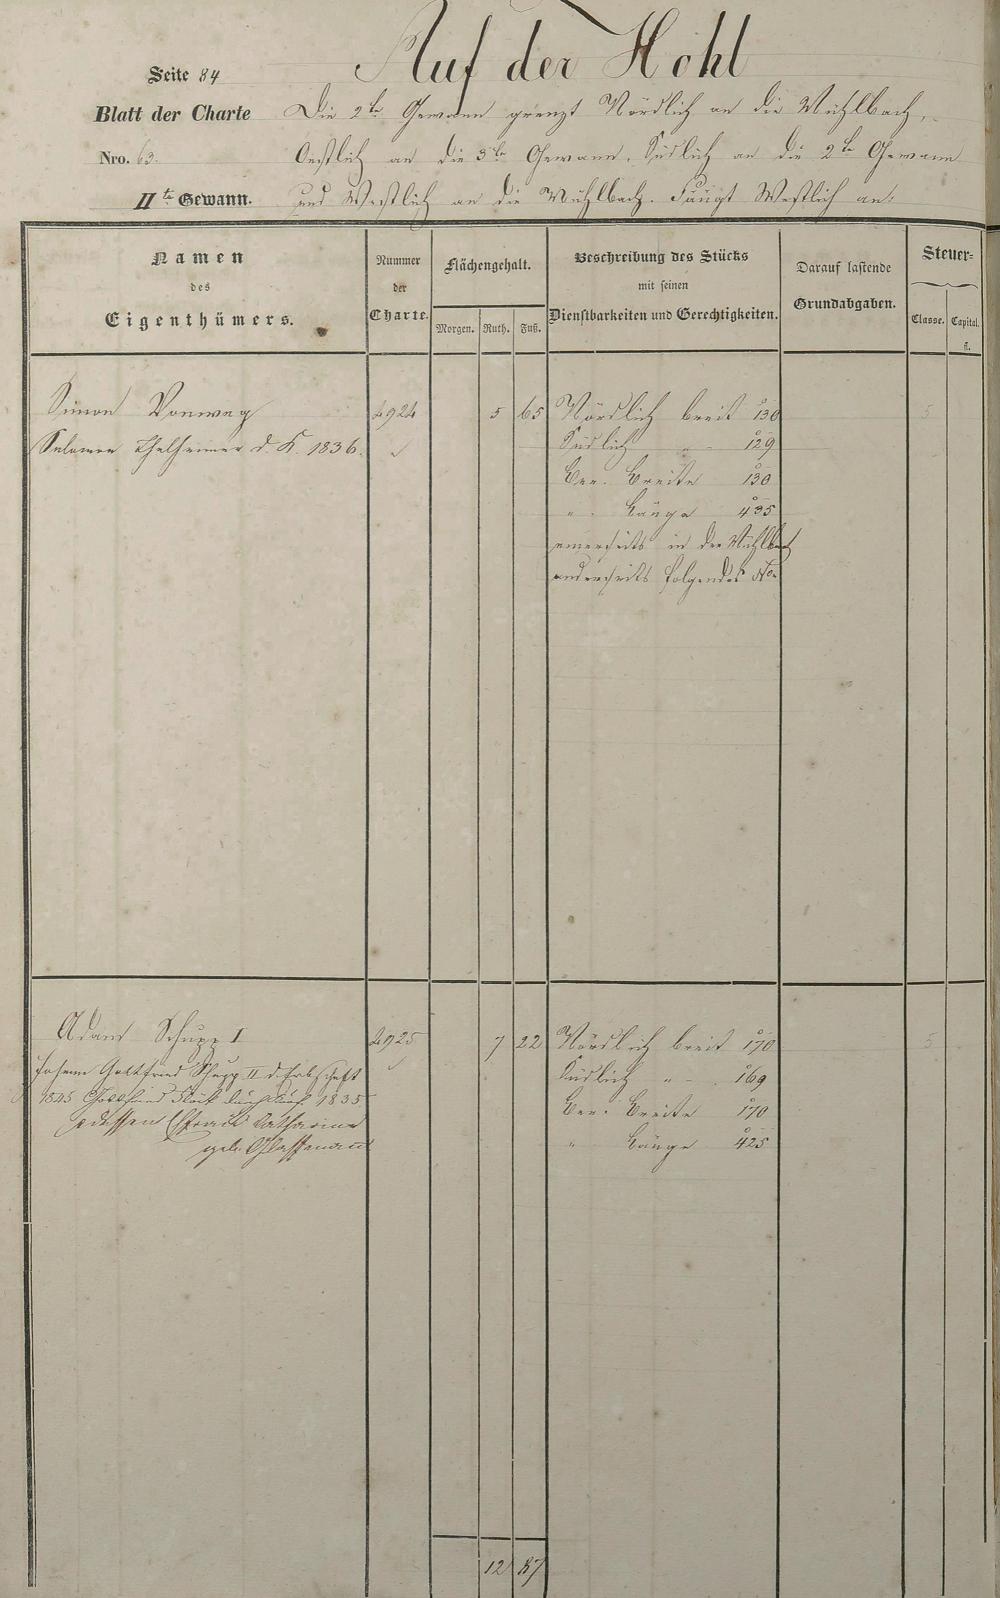 Auf der Hohl
Seite 84
Blatt der Charte
Nro. 63.
II te Gewann.
Die 2te Gewann grenzt Nördlich an die Mühlbach,
Oestlich an die 3te Gewann, Südlich an die 2te Gewann
und Westlich an die Mühlbach. Fängt Westlich an:
Namen des Eigenthümers.
Nummer der Charte.
Flächengehalt.
Morgen. Ruth. Fuß.
Beschreibung des Stücks mit seinen Dienstbarkeiten und Gerechtigkeiten.
Darauf lastende Grundabgaben.
Steuer-
Classe. Capital. fl.
Simon Vonweg 4924 5 65 Nördlich breit 130 5
Salomon d. K. 1836. Südlich " 129
Ber. Breite 130
" Länge 435
einerseits in der Mühlbach
anderseits folgendes No.
Adam Schupp I 4925 7 22 Nördlich breit 170 5
Johann Gottfried Schupp II d. Erbschaft
Südlich " 169
1845 1835
Ber. Breite 170
dessen Ehefrau Catharina
" Länge 425
geb.
12 87